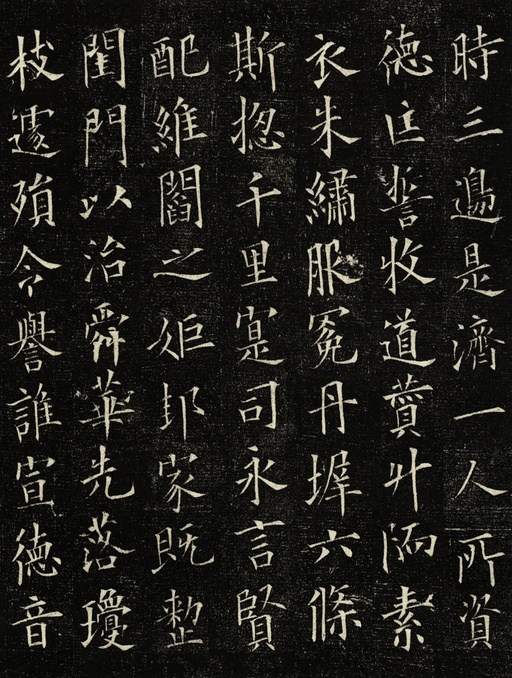 時三邊是濟一人所資
德匡誓牧道賁升陋素
衣朱繡服冕丹墀六條
斯揔千里寔司永言賢
配維閻之姬邦家既整
閨門以治舜華先落瓊
枝遽殞令譽誰宣德音